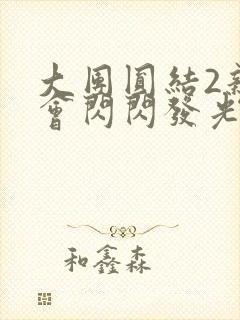 大團圓結2新
會閃閃發光
和鑫森